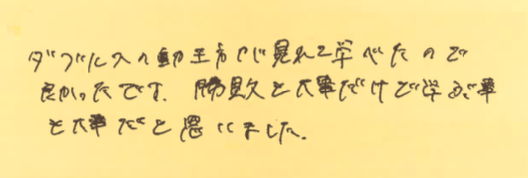 ダブルスの動き方が見れて学べたので
良かったです。勝敗も大事だけど学ぶ事
も大事だと思いました。